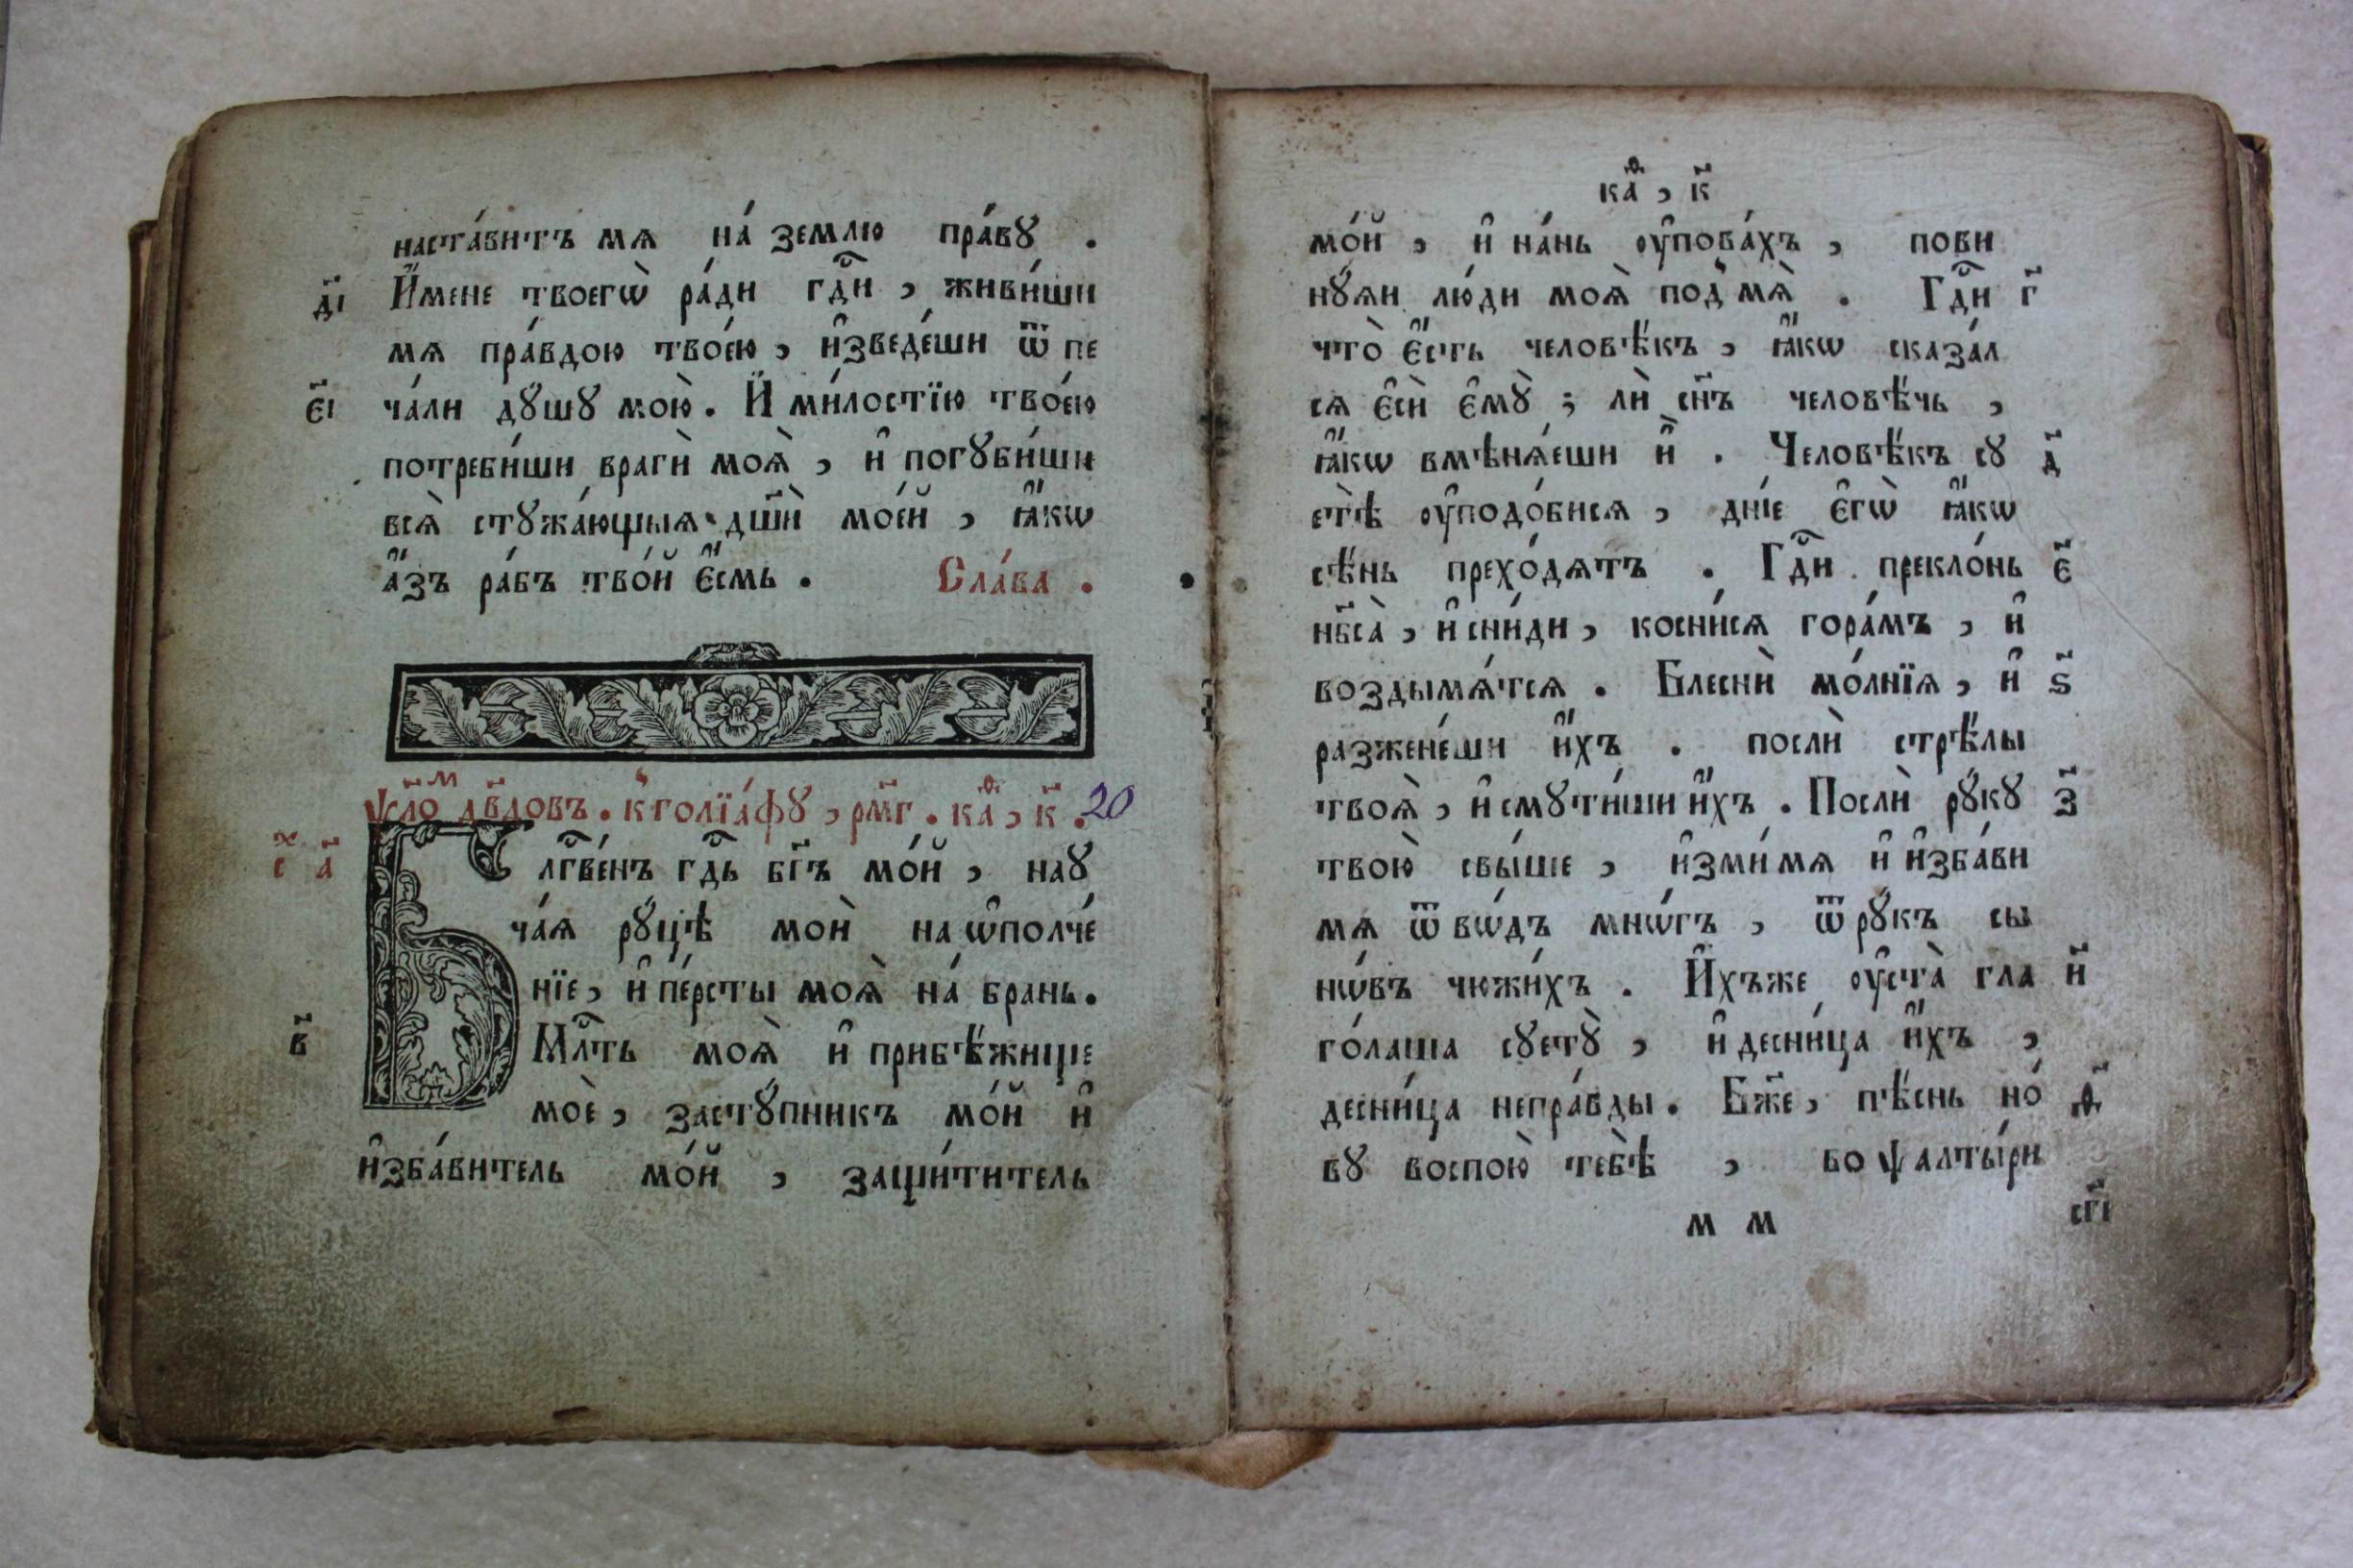 наста́витъ мѧ на́ землю пра́вꙋ .
д҃і И҆́мене твоегѡ̀ ра́ди гдⷭ҇и , живи́ши
мѧ пра́вдою твое́ю , и҆зведе́ши ѿ пе
є҃і ча́ли дꙋ́шꙋ мою̀ . И҆ ми́лостїю твое́ю
потреби́ши врагѝ моѧ̀ , и҆ погꙋби́ши
всѧ̀ стꙋжа́ющыѧ дш҃ѝ мое́й , ꙗ҆́кѡ
а҆́зъ ра́бъ тво́й є҆́смь . Сла́ва .
ѱл҃о́м дв҃довъ . к̾ голїа́фꙋ , рм҃г . каⷴ҇ , к҃ . 20
с҃ а҃ Блгⷭ҇ве́нъ гдⷭ҇ь бг҃ъ мо́й , наꙋ
ча́ѧ рꙋ́цѣ моѝ на ѡ҆полче́
нїе , и҆ пе́рсты моѧ̀ на́ брань .
в҃ Млⷭ҇ть моѧ̀ и҆ прибѣ́жище
моѐ , застꙋ́пникъ мо́й и҆
и҆зба́витель мо́й , защи́титель
каⷴ҇ , к҃
мо́й , и҆ на́нь ᲂу҆пова́хъ , пови
нꙋ́ѧи лю́ди моѧ̀ под̾ мѧ̀ . Гдⷭ҇и г҃
что̀ є҆́сть человѣ́къ , ꙗ҆́кѡ сказа́л
сѧ є҆сѝ є҆мꙋ̀ ; лѝ сн҃ъ человѣ́чь ,
ꙗ҆́кѡ вмѣнѧ́еши и҆̀ . Человѣ́къ сꙋ д҃
етѣ̀ ᲂу҆подо́бисѧ , дні́е є҆гѡ̀ ꙗ҆́кѡ
сѣ́нь прехо́дѧтъ . Гдⷭ҇и прекло́нь є҃
нб҃са̀ , и҆ сни́ди , косни́сѧ гора́мъ , и҆
воздымѧ́тсѧ . Блеснѝ мо́лнїѧ , и҆ ѕ҃
разжене́ши и҆́хъ . послѝ стрѣ́лы
твоѧ̀ , и҆ смꙋти́ши и҆́хъ . Послѝ рꙋ́кꙋ з҃
твою̀ свы́ше , и҆зми́ мѧ и҆ и҆зба́ви
мѧ ѿ вѡ́дъ мнѡ́гъ , ѿ рꙋ́къ сы
нѡ́въ чюжи́хъ . И҆́хъже ᲂу҆ста̀ гла и҃
го́лаша сꙋетꙋ̀ , и҆ десни́ца и҆́хъ ,
десни́ца непра́вды . Бж҃е , пѣ́снь но́ ѳ҃
вꙋ воспою̀ тебѣ̀ , во ѱалты́ри
м м сг҃і